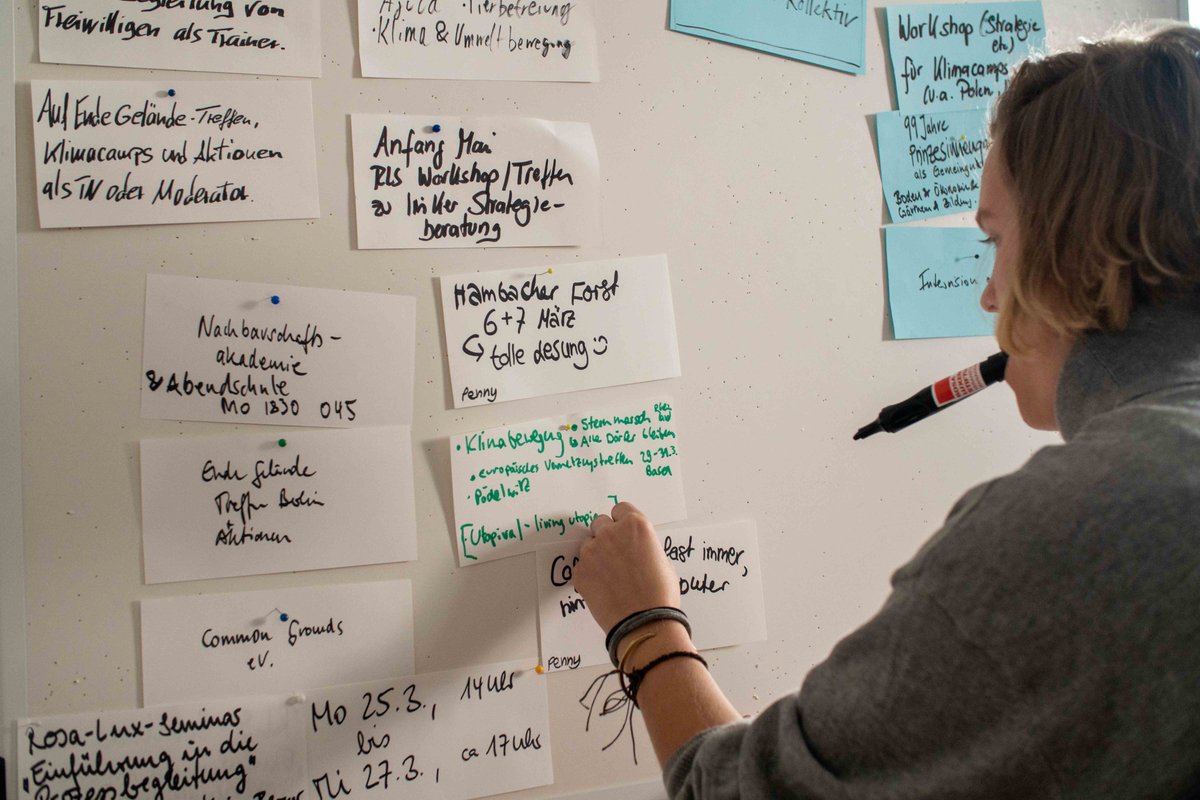 Freiwilligen als Trainer.
· Tierbefreiung
· Klima & Umweltbewegung
Kollektiv
Workshop (Strategie
etc)
für Klimacamps
(u.a. Polen,
Auf Ende Gelände-Treffen,
Klimacamps und Aktionen
als TN oder Moderator.
Anfang Mai
RLS Workshop/Treffen
zu linker Strategie-
beratung
99 Jahre
als Gemeingut
Boden & Ökonomie &
Gärtnern & Bildung.
Hambacher Forst
6+7 März
↪ tolle Lesung ☺
Penny
Nachbarschafts-
akademie
& Abendschule
Mo 1830 045
· Klimabewegung Sternmarsch
Alle Dörfer bleiben
· europäisches Vernetzungstreffen 29-31.3.
Basel
· Pödelwitz
[Utopival - living utopia]
Ende Gelände
Treffen Berlin
Aktionen
fast immer,
Penny
Common Grounds
eV.
Rosa-Lux-Seminar
"Einführung in die
Prozessbegleitung"
Mo 25.3., 14 Uhr
bis
Mi 27.3., ca 17 Uhr